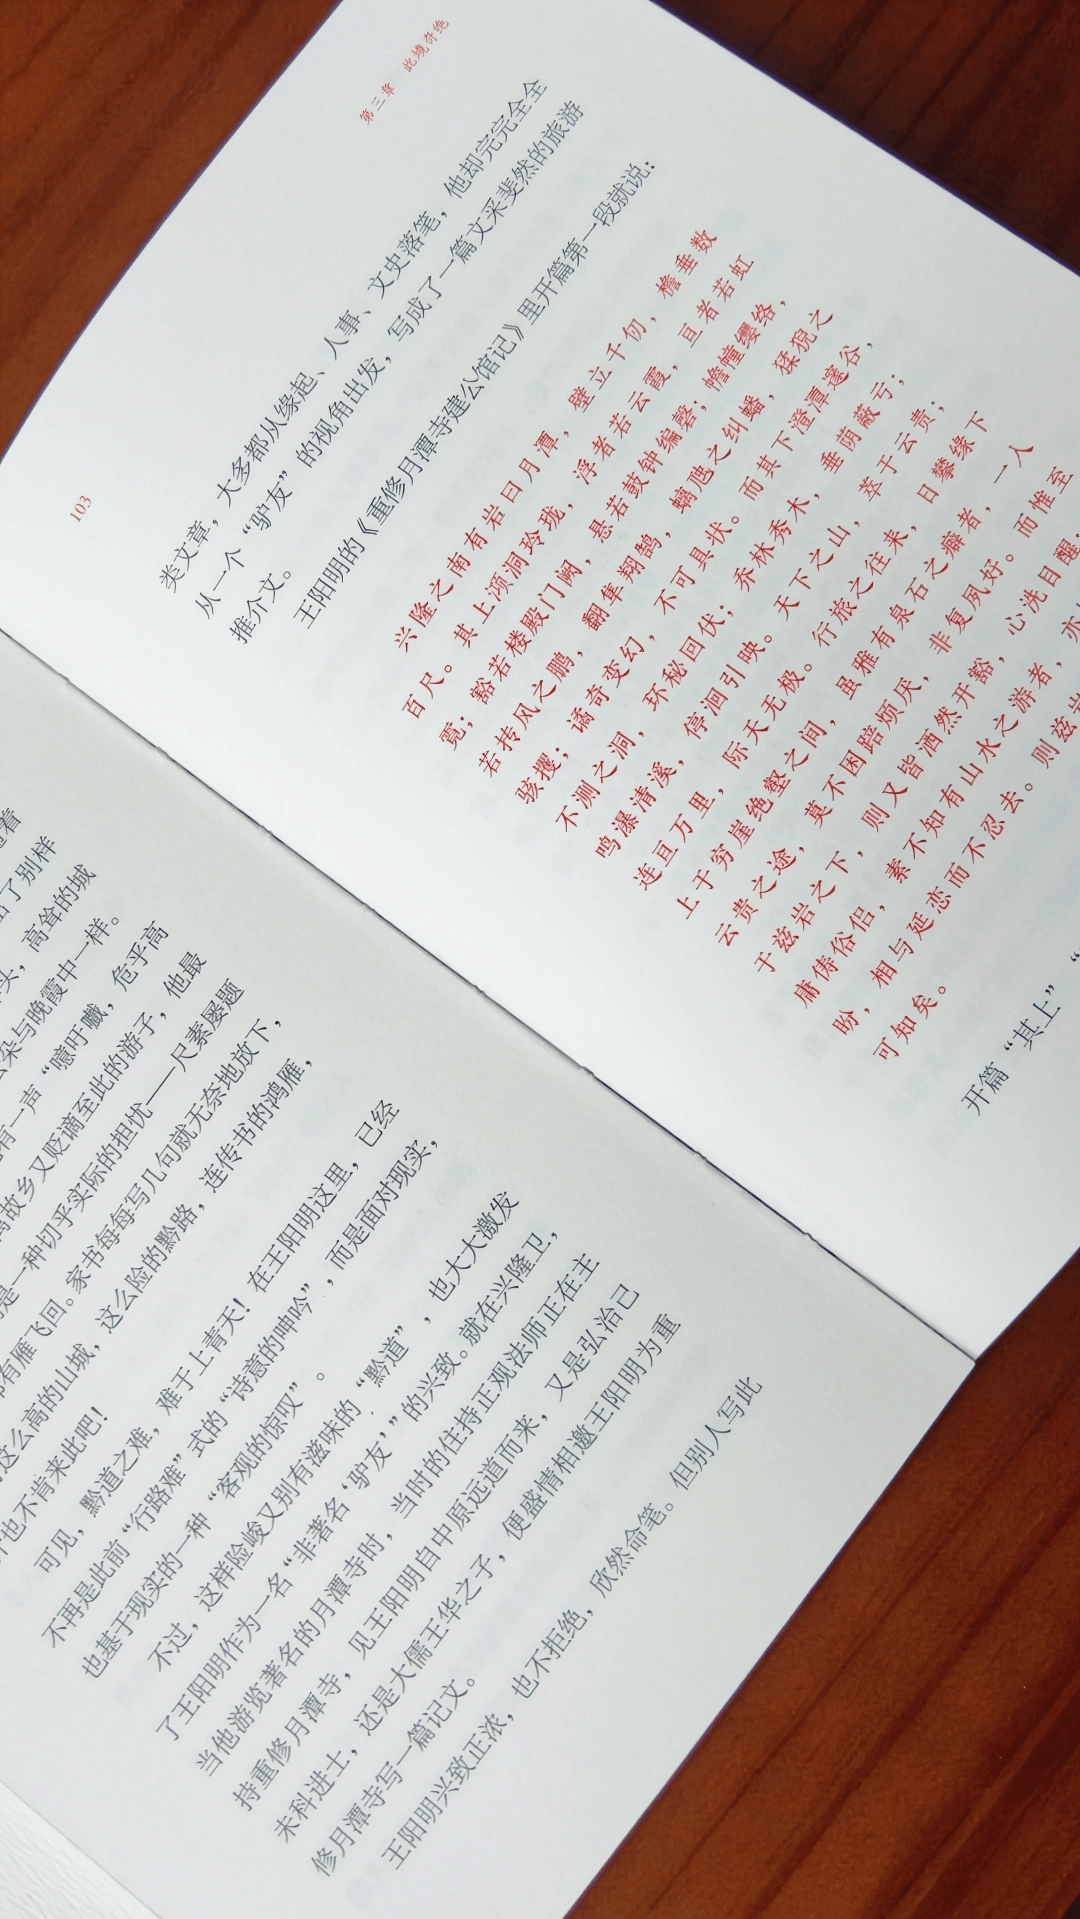 着
了别样
头，高耸的城
朵与晚霞中一样。
有一声“噫吁嚱，危乎高
故乡又贬谪至此的游子，他最
是一种切乎实际的担忧——尺素屡题
有雁飞回。家书每每写几句就无奈地放下，
这么高的山城，这么险的黔路，连传书的鸿雁，
也不肯来此吧！
可见，黔道之难，难于上青天！在王阳明这里，已经
不再是此前“行路难”式的“诗意的呻吟”，而是面对现实，
也基于现实的一种“客观的惊叹”。
不过，这样险峻又别有滋味的“黔道”，也大大激发
了王阳明作为一名“非著名‘驴友’”的兴致。就在兴隆卫，
当他游览著名的月潭寺时，当时的住持正观法师正在主
持重修月潭寺，见王阳明自中原远道而来，又是弘治己
未科进士，还是大儒王华之子，便盛情相邀王阳明为重
修月潭寺写一篇记文。
王阳明兴致正浓，也不拒绝，欣然命笔。但别人写此
第三章 此境奇绝
103
类文章，大多都从缘起、人事、文史落笔，他却完完全全
从一个“驴友”的视角出发，写成了一篇文采斐然的旅游
推介文。
王阳明的《重修月潭寺建公馆记》里开篇第一段就说：
兴隆之南有岩曰月潭，壁立千仞，檐垂数
百尺。其上澒洞玲珑，浮者若云霞，亘者若虹
霓；豁若楼殿门阙，悬若鼓钟编磬；幨幢缨络，
若抟风之鹏，翻隼翔鹄，螭虺之纠蟠，猱猊之
骇攫；谲奇变幻，不可具状。而其下澄潭邃谷，
不测之洞，环秘回伏；乔林秀木，垂荫蔽亏；
鸣瀑清溪，停洄引映。天下之山，萃于云贵；
连亘万里，际天无极。行旅之往来，日攀缘下
上于穷崖绝壑之间，虽雅有泉石之癖者，一入
云贵之途，莫不困踣烦厌，非复夙好。而惟至
于兹岩之下，则又皆洒然开豁，心洗目醒；
庸俦俗侣，素不知有山水之游者，亦
盼，相与延恋而不忍去。则兹岩
可知矣。
开篇“其上”“